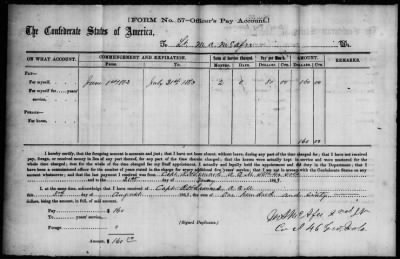 [FORM No. 57—Officer's Pay Account.]
The Confederate States of America,
To Lt. M. A. McAfee Dr.
ON WHAT ACCOUNT.
COMMENCEMENT AND EXPIRATION.
Term of Service Charged.
Pay per Month.
AMOUNT.
REMARKS.
From
To
MONTHS.
DAYS.
DOLLARS.
CTS.
DOLLARS.
CTS.
PAY—
For myself,
June 1st 1863
July 31st 1863
2
80 00
160 00
For myself for years'
service,
FORAGE—
For horse,
160 00
I hereby certify, that the foregoing account is accurate and just; that I have not been absent, without leave, during any part of the time charged for; that I have not received
pay, forage, or received money in lieu of any part thereof, for any part of the time therein charged; that the horses were actually kept in service and were mustered for the
whole time charged; that for the whole time charged for my Staff appointment, I actually and legally held the appointment and did duty in the Department; that I have
been a commissioned officer for the number of years stated in the charge for every additional five years' service; that I am not in arrears with the Confederate States on any
account whatsoever; and that the last payment I received was from Capt.
day of 1863.
I at the same time, acknowledge that I have received of Capt. this
day of August 1863, the sum of One hundred and sixty
dollars, being the amount, in full, of said account.
Pay $ 160
To years' service,
Forage
Amount, $ 160
(Signed Duplicates.)